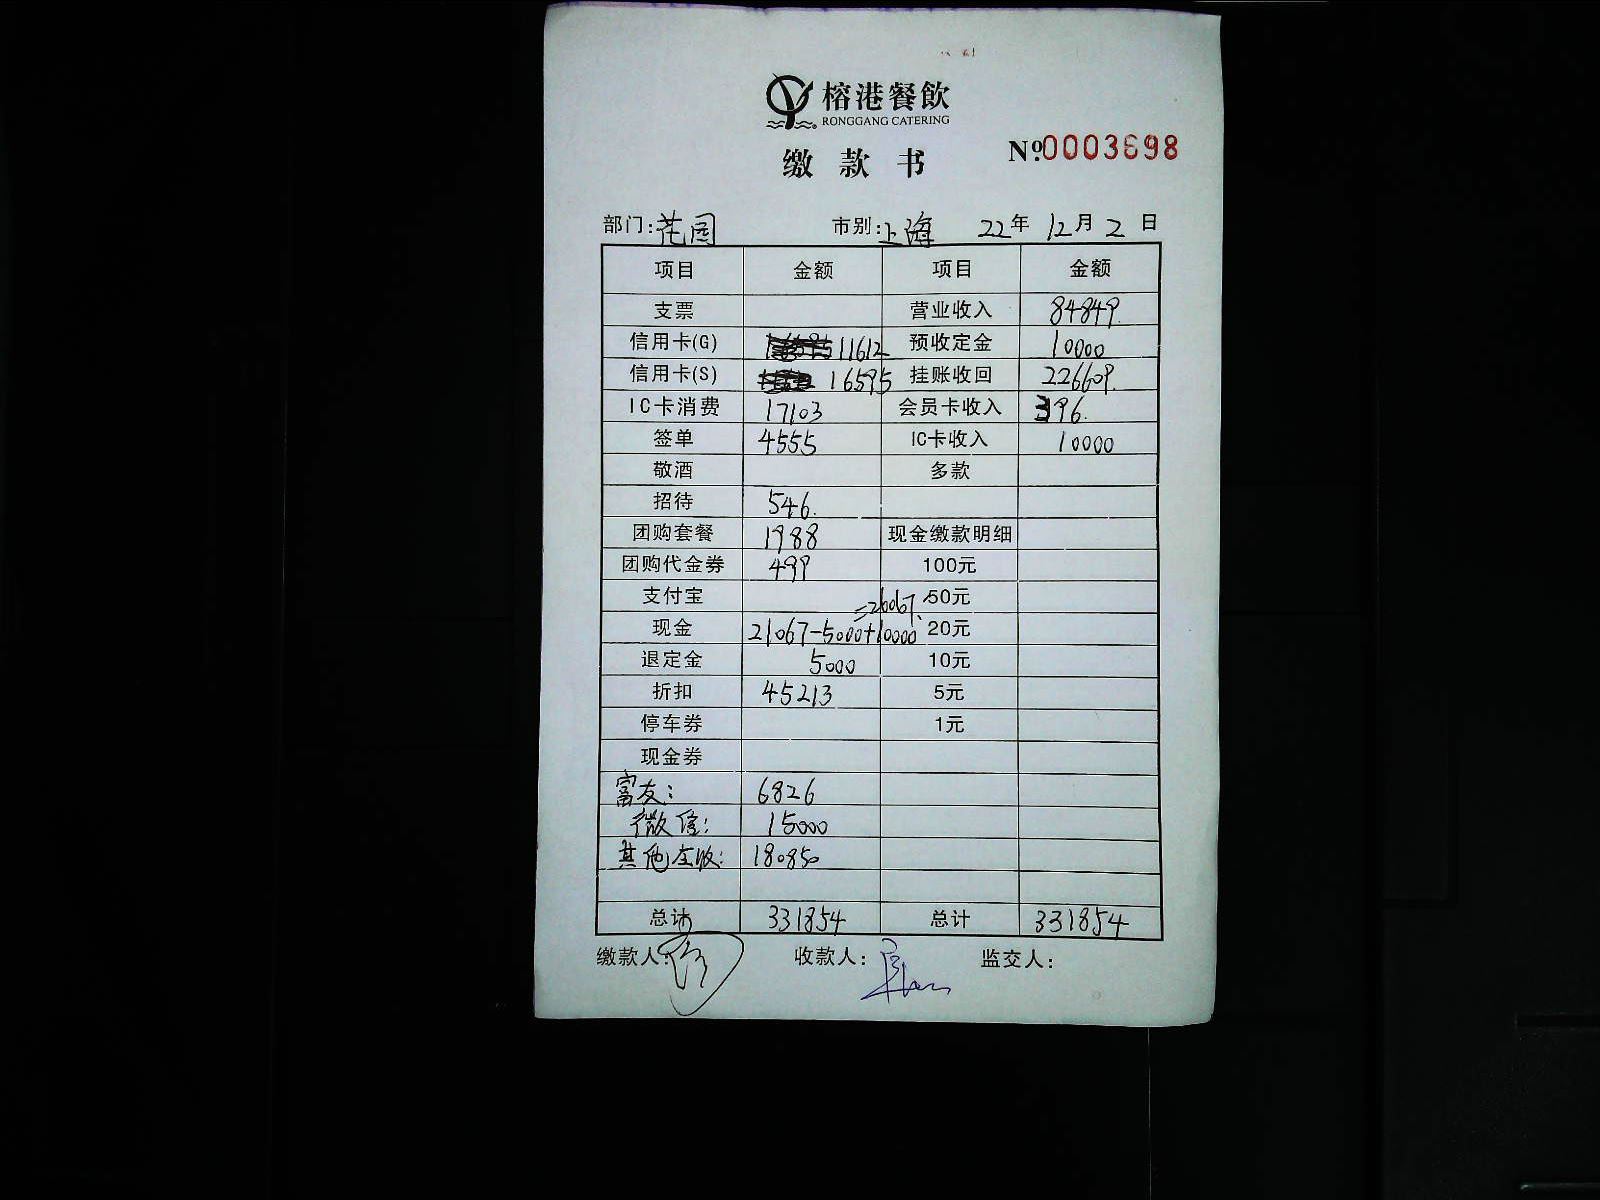 榕港餐飲
RONGGANG CATERING
缴款书 № 0003698
部门:花园 市别:上海 22年12月2日
项目 金额 项目 金额
支票 营业收入 84849.
信用卡(G) 11612 预收定金 10000
信用卡(S) 16595 挂账收回 226609.
IC卡消费 17103 会员卡收入 396.
签单 4555 IC卡收入 10000
敬酒 多款
招待 546.
团购套餐 1988 现金缴款明细
团购代金券 499 100元
支付宝 =26067. 50元
现金 21067-5000+10000 20元
退定金 5000 10元
折扣 45213 5元
停车券 1元
现金券
富友: 6826
微信: 15000
其他应收: 180850
总计 331854 总计 331854
缴款人: 收款人: 监交人: